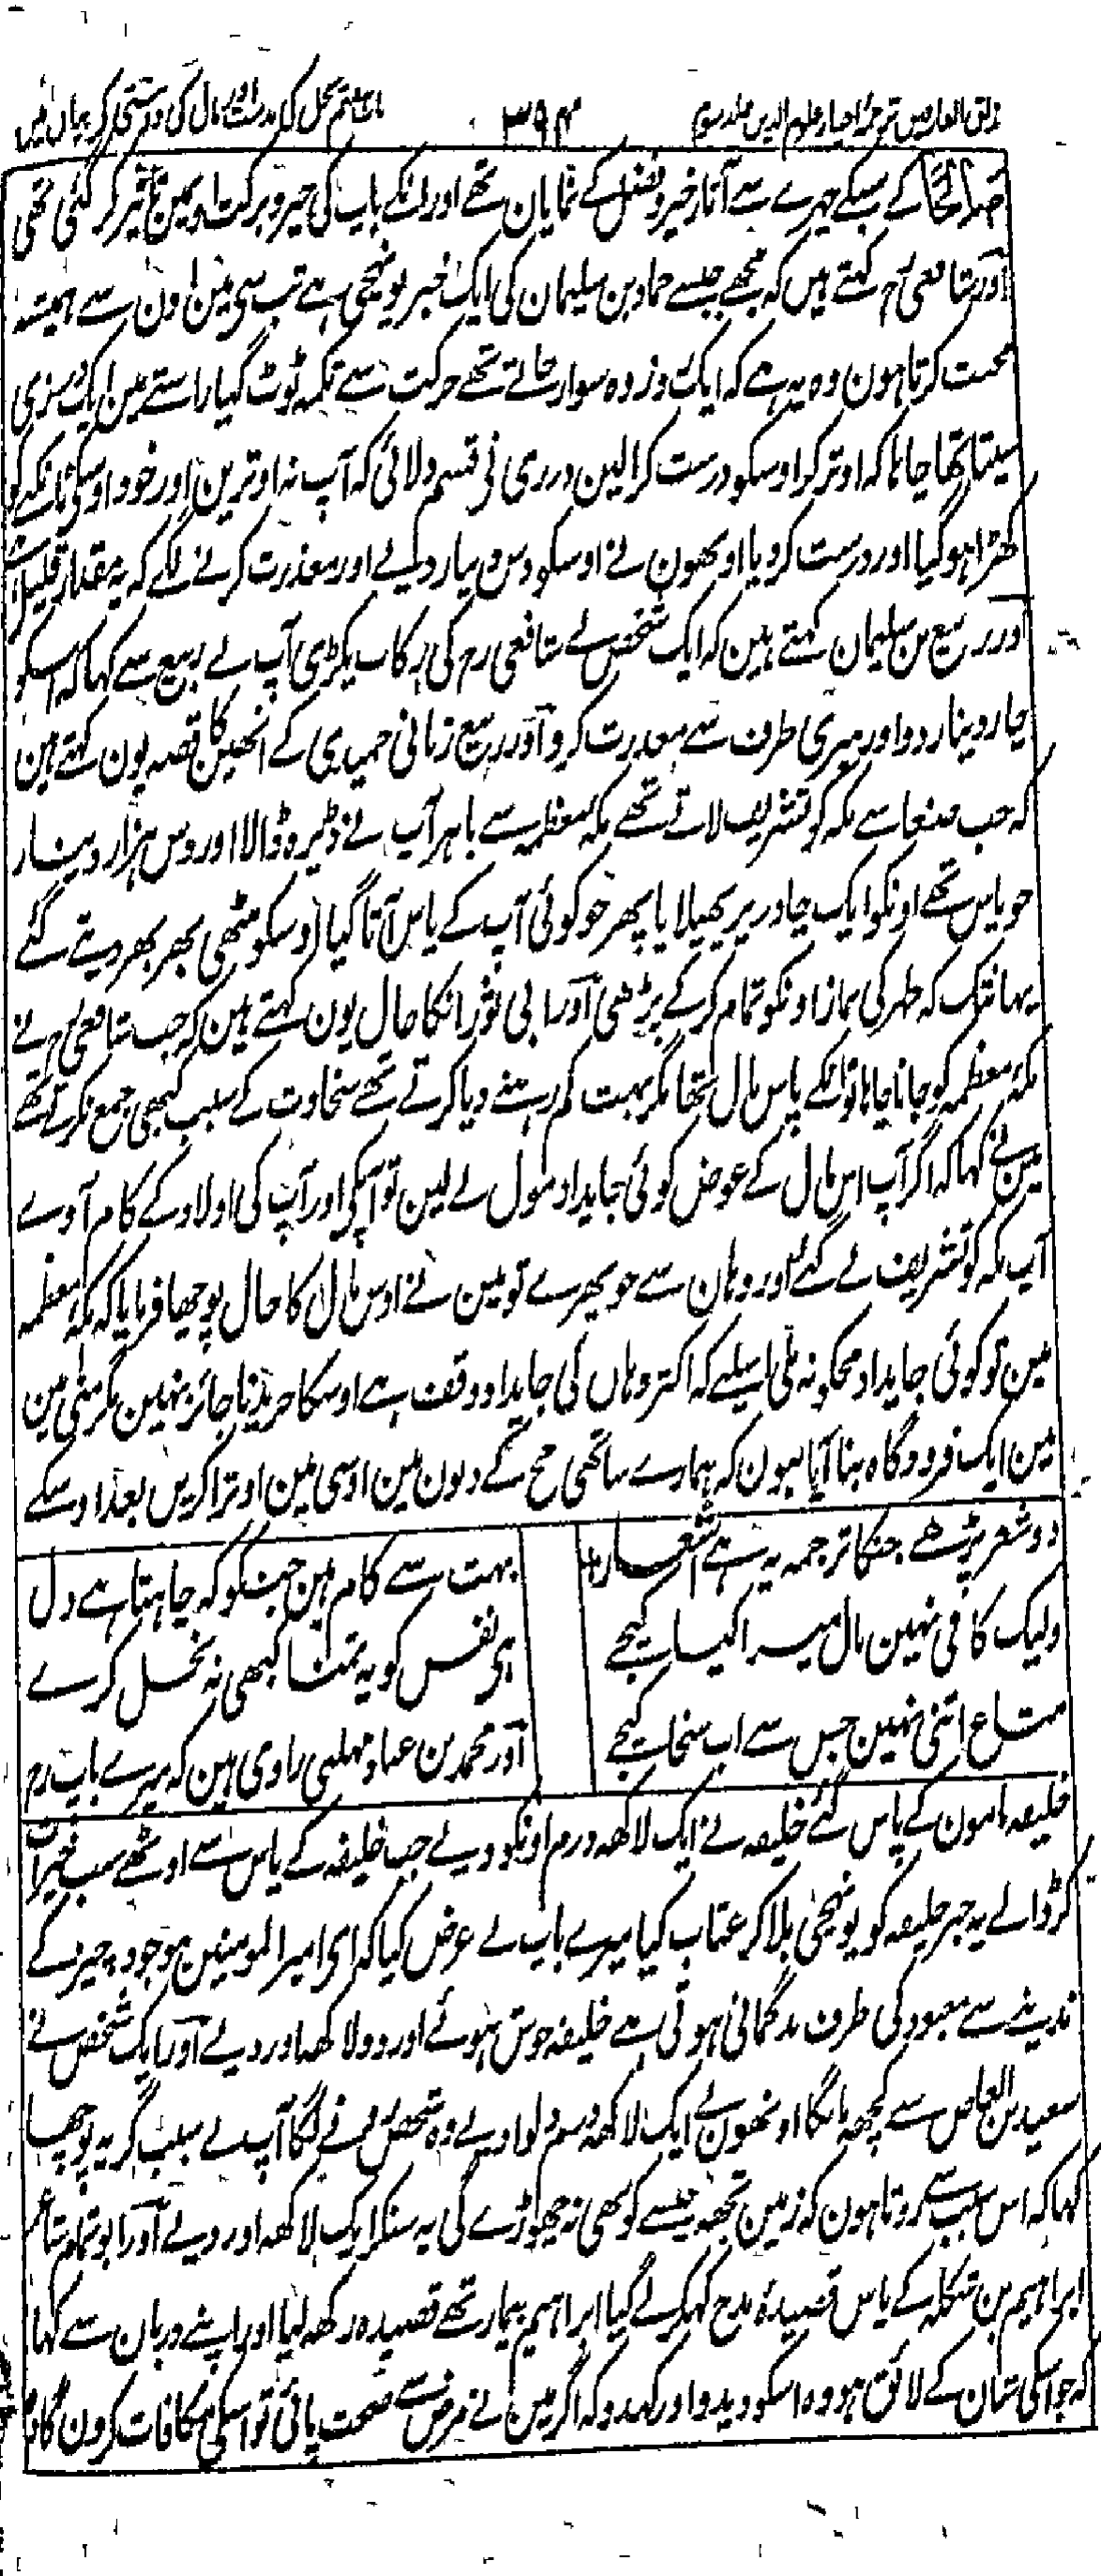 مذاق العارفین ترجمۂ احیاء علوم الدین جلد سوم ۳۹۴ باب ہفتم بخل کی مذمت اور مال کی دوستی کے بیان میں
کے سبکے چہرے سے آثار خیر و فضل کے نمایان تھے اور انکے باپ کی خیر و برکت اون مین تاثیر کر گئی تھی
آور شافعی رح کہتے ہیں کہ مجھے جبسے حماد بن سلیمان کی ایک خبر پونچی ہے تب سی مین اون سے ہمیشہ
محبت کرتا ہون وہ یہ ہے کہ ایک روز وہ سوار جاتے تھے حرکت سے تکمہ ٹوٹ گیا راستے مین ایک درزی
سیتا تھا چاہا کہ اوتر کر اوسکو درست کرالین درزی نی قسم دلائی کہ آپ نہ اوترین اور خود اوسکی ٹانکنے کو
کھڑا ہو گیا اور درست کر دیا اونھون نے اوسکو دس دینار دیئے اور معذرت کرنے لگے کہ یہ مقدار قلیل ہے
آور ربیع بن سلیمان کہتے ہین کہ ایک شخص نے شافعی رح کی رکاب پکڑی آپ نے ربیع سے کہا کہ اسکو
چار دینار دو اور میری طرف سے معذرت کرو آور ربیع زبانی حمیدی کے انھین کا قصہ یون کہتے ہین
کہ جب صنعا سے مکہ کو تشریف لاتے تھے مکہ معظمہ سے باہر آپ نے ڈیرہ ڈالا اور دس ہزار دینار
جو پاس تھے اونکو ایک چادر پر پھیلایا پھر جو کوئی آپ کے پاس آتا گیا اوسکو مٹھی بھر بھر دیتے گئے
یہانتک کہ ظہر کی نماز اونکو تمام کر کے پڑھی آور ابی ثور انکا حال یون کہتے ہین کہ جب شافعی رح نے
مکۂ معظمہ کو جانا چاہا تو انکے پاس مال تھا مگر بہت کم رہنے دیا کرتے تھے سخاوت کے سبب کبھی جمع نکرتے تھے
مین نے کہا کہ اگر آپ اس مال کے عوض کوئی جایداد مول لے لین تو آپکی اور آپ کی اولاد کے کام آوے
آپ مکہ کو تشریف لے گئے اور وہان سے جو پھرے تو مین نے اوس مال کا حال پوچھا فرمایا کہ مکۂ معظمہ
مین تو کوئی جایداد مجکو نہ ملی اسلیے کہ اکثر وہاں کی جایداد وقف ہے اوسکا خریدنا جائز نہین مگر منی مین
مین ایک فرودگاہ بنا آیا ہون کہ ہمارے ساتھی حج کے دنون مین اوسی مین اوترا کریں بعد اوسکے
دو شعر پڑھے جنکا ترجمہ یہ ہے اشعار بہت سے کام ہین جنکو کہ چاہتا ہے دل
ولیک کافی نہین مال میرا کیا کیجے ہی نفس کو یہ تمنا کبھی نہ بخل کرے
متاع اتنی نہین جس سے اب سخا کیجے آور محمد بن عباد مہلبی راوی ہین کہ میرے باپ رح
خلیفہ مامون کے پاس گئے خلیفہ نے ایک لاکھ درم اونکو دیے جب خلیفہ کے پاس سے اوٹھے سب خیرات
کر ڈالے یہ خبر خلیفہ کو پونچی بلا کر عتاب کیا میرے باپ نے عرض کیا کہ ای امیر المومنین موجود چیز کے
ندینے سے معبود کی طرف بدگمانی ہوتی ہے خلیفہ خوش ہوئے اور دو لاکھ اور دیے آور ایک شخص نے
سعید بن العاص سے کچھ مانگا اونھون نے ایک لاکھ درم دلوا دیے وہ شخص رونے لگا آپ نے سبب گریہ پوچھا
کہا کہ اس سبب سے روتا ہون کہ زمین تجھ جیسے کو بھی نہ چھوڑے گی یہ سنکر ایک لاکھ اور دیے آور ابو تمام شاعر
ابراہیم بن شکلہ کے پاس قصیدۂ مدح کہکر لے گیا ابراہیم بیمار تھے قصیدہ رکھ لیا اور اپنے دربان سے کہا
کہ جو اسکی شان کے لائق ہو وہ اسکو دیدو اور کہدو کہ اگر مین نے مرض سے صحت پائی تو اسکی مکافات کرون گا